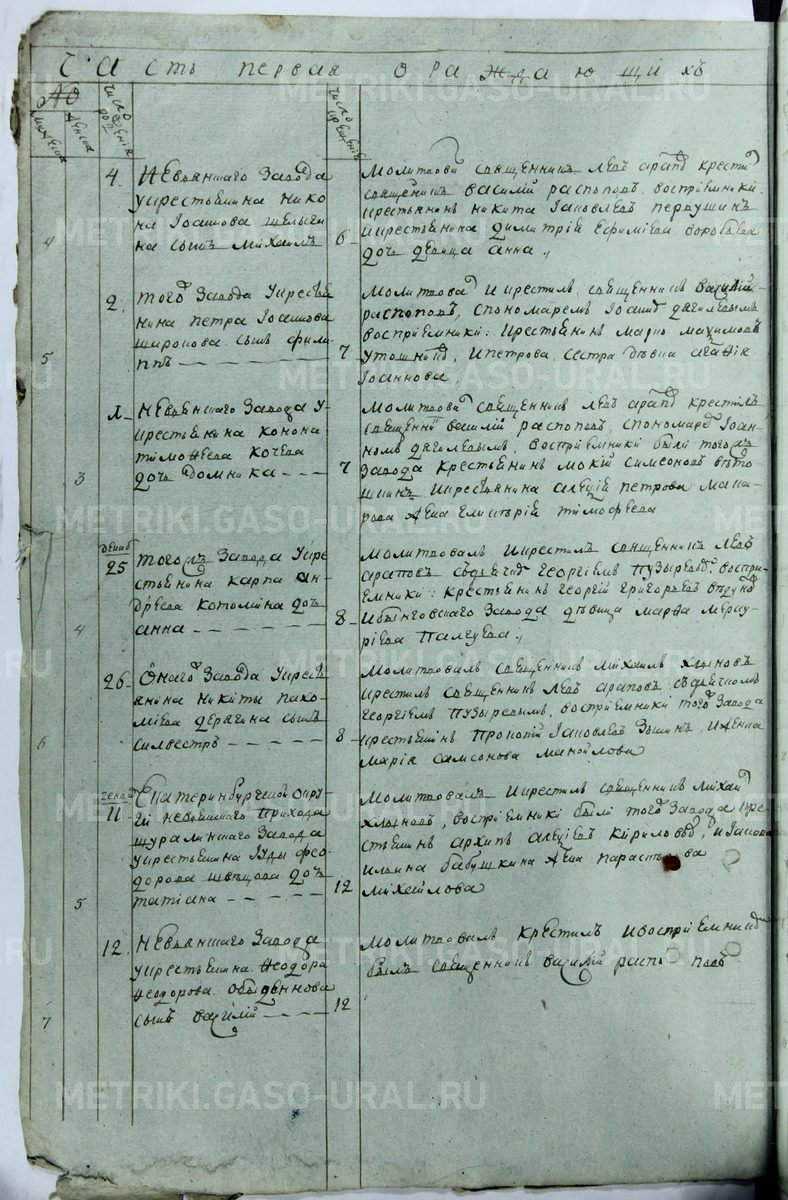 Часть первая о раждающихся
число рождения
число крещения
4. Невьянскаго завода
у крестьянина Нико
на Иоаннова
на сынъ Михаилъ
4
6
Молитвовал священникъ Левъ Арапов крестил
священникъ Василий Распоповъ, восприемники:
крестьянинъ Никита Иаковлевъ Первушинъ
и крестьянина Димитрия Ефимиева Воробьева
дочь девица Анна.
2. того завода у крестья
нина Петра Иоаннова
Широкова сынъ Фили
ппъ
5
7
Молитвовал и крестилъ священникъ Василий
Распоповъ, с пономаремъ Иоанномъ Дягилевымъ
восприемники: крестьянинъ Марко Маѯимовъ
и Петрова сестра девка Агафия
Иоаннова
Невьянскаго завода у
крестьянина Конона
Тимофеева Кочева
дочь Домника
3
7
Молитвовал священникъ Левъ Арапов крестилъ
священник Василий Распоповъ, с пономаремъ Иоан
номъ Дягилевымъ, восприемники были того жъ
завода крестьянинъ Мокий Симеоновъ Вето
шкинъ, и крестьянина Алеѯия Петрова Мака
рова жена Гликерия Тимофеева
декаб
25
тогожъ завода у кре
стьянина Карпа Ан
дреева Котомкина дочь
Анна
4
8
Молитвовалъ и крестилъ священникъ Левъ
Араповъ съ дьячкомъ Георгиемъ Пузыревымъ, воспри
емники: крестьянинъ Георгий Григорьевъ
и Быньговскаго завода девица Марфа Мерку
риева Палцева.
26
Онаго завода у кресть
янина Никиты Пахо
миева Дерягина сынъ
Силвестръ
6
8
Молитвовалъ священникъ Михаилъ Хлыновъ
крестилъ священникъ Левъ Араповъ съ дьячкомъ
Георгиемъ Пузыревымъ, восприемники того завода
крестьянинъ Прокопий Иаковлевъ Зыкинъ, и жена
Мария Самсонова Манойлова
генва
11
Екатеринбургской окру
ги Невьянскаго прихода
Шуралинскаго завода
у крестьянина Иуды Фео
дорова Швецова дочь
Татиана
5
12
Молитвовалъ и крестилъ священникъ Михаил
Хлыновъ, восприемники были того завода кре
стьянинъ Архипъ Алеѯиевъ Кириловъ, и Иакова
Ильина Бабушкина жена Параскева
Михейлова
12.
Невьянскаго завода
у крестьянина Феодора
Феодорова Обыденнова
сынъ Василий
7
12
Молитвовалъ крестилъ и восприемникъ
былъ священникъ Василий Распоповъ
METRIKI.GASO-URAL.RU